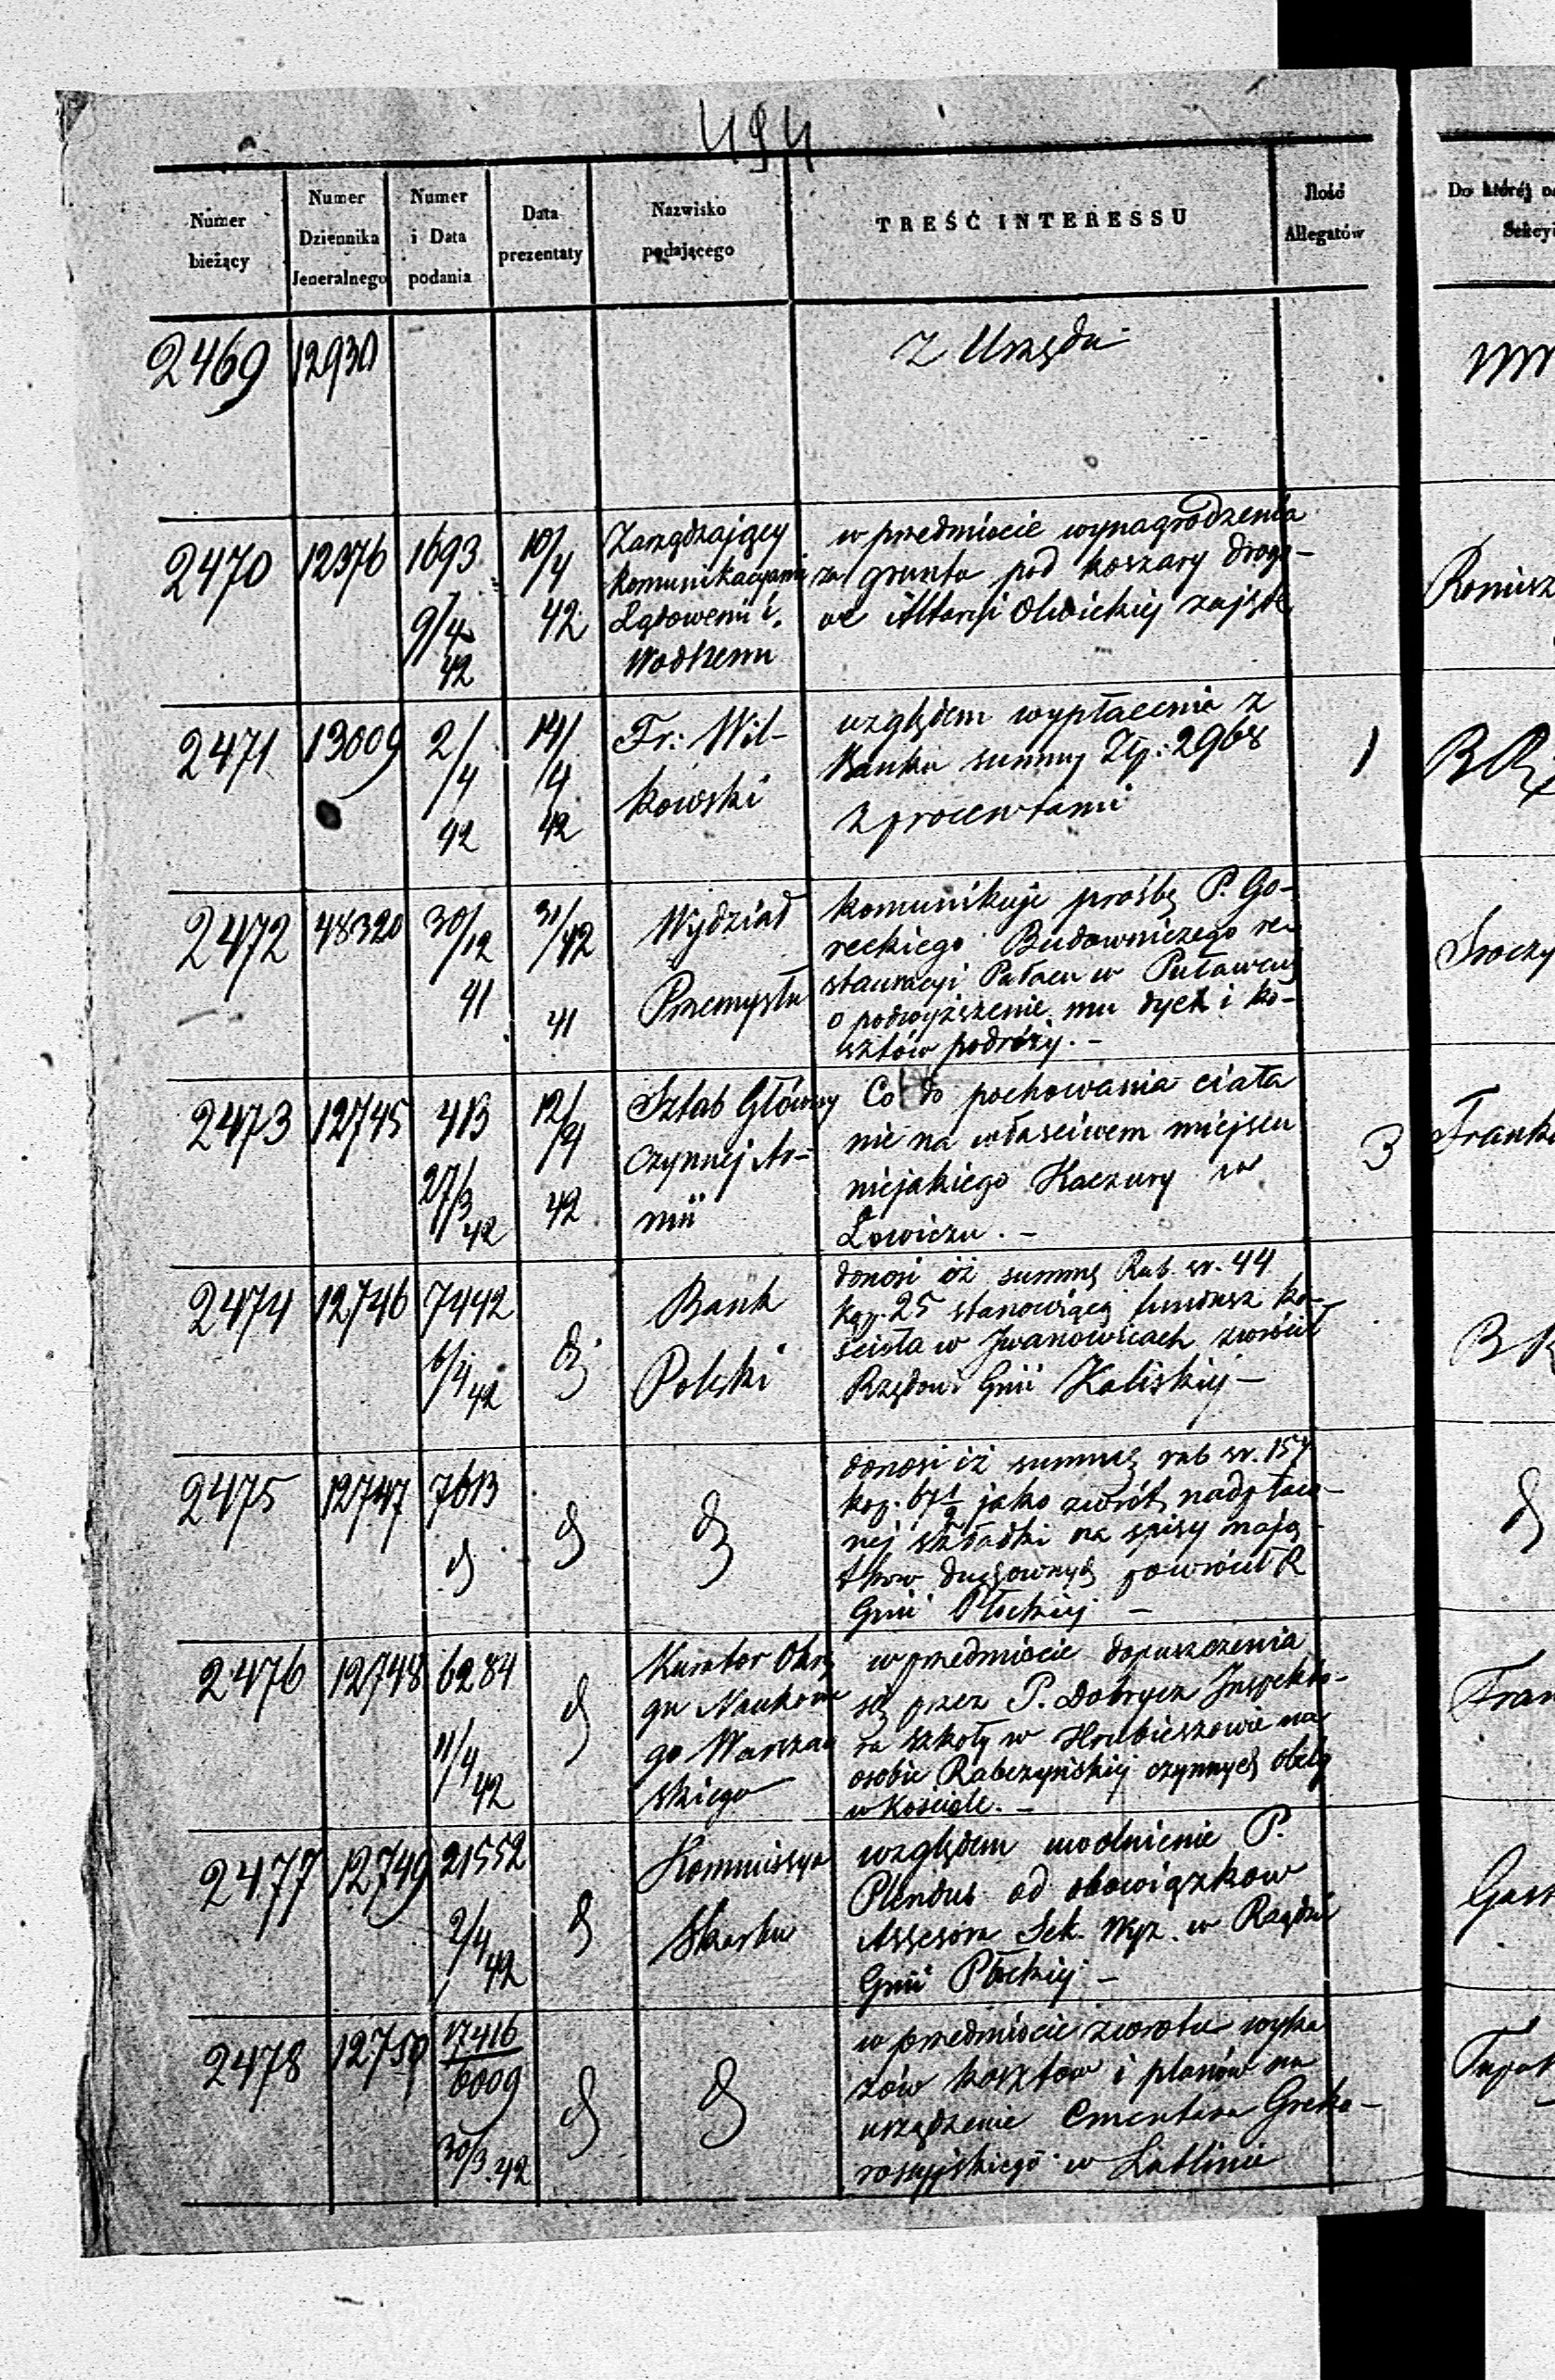 494
Numer bieżący
Numer Dziennika Jeneralnego
Numer i Data podania
Data prezentaty
Nazwisko podającego
TREŚĆ INTERESSU
Ilość Allegatów
Do której
Sekcyi
2469 12930
z Urzędu
2470 12376 1693 9/4 42 10/4 42
Zarządzający
Komunikacyami
Lądowemi i
Wodnemi
w przedmiocie wynagrodzenia
za grunta pod koszary drogo-
we zajęte
2471 13009 2/4 42 14/4 42
Fr: Wil-
kowski
względem wypłacenia z
Banku summy Złp: 2968
z procentami
1
2472 48320 30/12 41 31/12 41
Wydział
Przemysłu
komunikuje prośbę P. Go-
reckiego Budowniczego re-
stauracyi Pałacu w Puławach
o podwyższenie mu dyet i ko-
sztów podróży. -
2473 12745 413 27/3 42 12/4 42
Sztab Główny
Czynnej Ar-
mii
Co do pochowania ciała
nie na właściwem miejscu
niejakiego Kaczury w
Łowiczu. -
3
Frank
2474 12746 7442 6/4 42
Bank
Polski
donosi iż summę Rub. sr. 44
kop. 25 stanowiącą fundusz ko-
ścioła w Iwanowicach zwrócił
Rządowi Gnii Kaliskiej -
2475 12747 7613
donosi iż summę rub sr. 157
kop. 67 1/2 jako zwrót nadpłaco-
nej składki na spisy mają-
tków duchownych powrócił R
Gnii Płockiej -
2476 12748 6284 11/4 42
Kurator Okrę
gu Naukowe
go Warszaw
skiego
w przedmiocie dopuszczenia
się przez P. Dobrycz Inspekto-
ra szkoły w Hrubieszowie na
osobie Rabczyńskiej czynnych obelg
w Kościele. -
2477 12749 21552 2/4 42
Kommissya
Skarbu
względem uwolnienie P.
Plendus od obowiązków
Assesora Sek. Wyz. w Rządzie
Gnii Płockiej -
2478 12750 17416/6009 30/3 42
w przedmiocie zwrotu wyka
zów kosztów i planów na
urządzenie Cmentarza Greko-
rossyjskiego w Lublinie